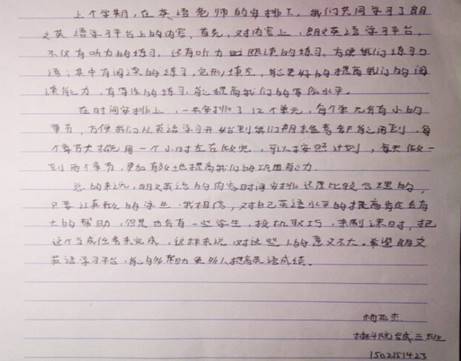 上个学期,在英语老师的安排下,我们共同学习了朗文
英语学习平台上的内容,首先,对内容上,朗文英语学习平台,
不仅有听力的练习,还有听力时跟读的练习,方便我们练习口
语,其中有阅读的练习,完形填空,能更好的提高我们的阅
读能力,有写作的练习,能提高我们的写作水平。
在时间安排上,一共安排了12个单元,每个单元分有小的
章节,方便我们从英语学习开始到我们期末检查都能用到,每
个章节大概用一个小时左右做完,可以按照计划,每天做一
到两个章节,更加有效地提高我们的运用能力。
总的来说,朗文英语的内容时间安排还是比较合理的,
只要认真做的学生,我相信,对自己英语水平的提高肯定会有
大的帮助,但是也会有一些学生,投机取巧,来刷课时,把
这个当成任务来完成,这样来说对这些人的意义不大。希望朗文
英语学习平台,能够帮助更多人提高英语成绩。
1502151423